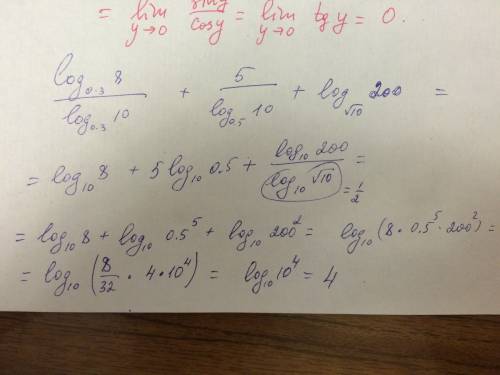 = lim_{y→0} sin y / cos y = lim_{y→0} tg y = 0.
log_{0.3} 8 / log_{0.3} 10 + 5 / log_{0.5} 10 + log_{√10} 200 =
= log_{10} 8 + 5 log_{10} 0.5 + log_{10} 200 / log_{10} √10 = 
= 1/2
= log_{10} 8 + log_{10} 0.5^5 + log_{10} 200^2 = log_{10} (8 · 0.5^5 · 200^2) =
= log_{10} (8/32 · 4 · 10^4) = log_{10} 10^4 = 4